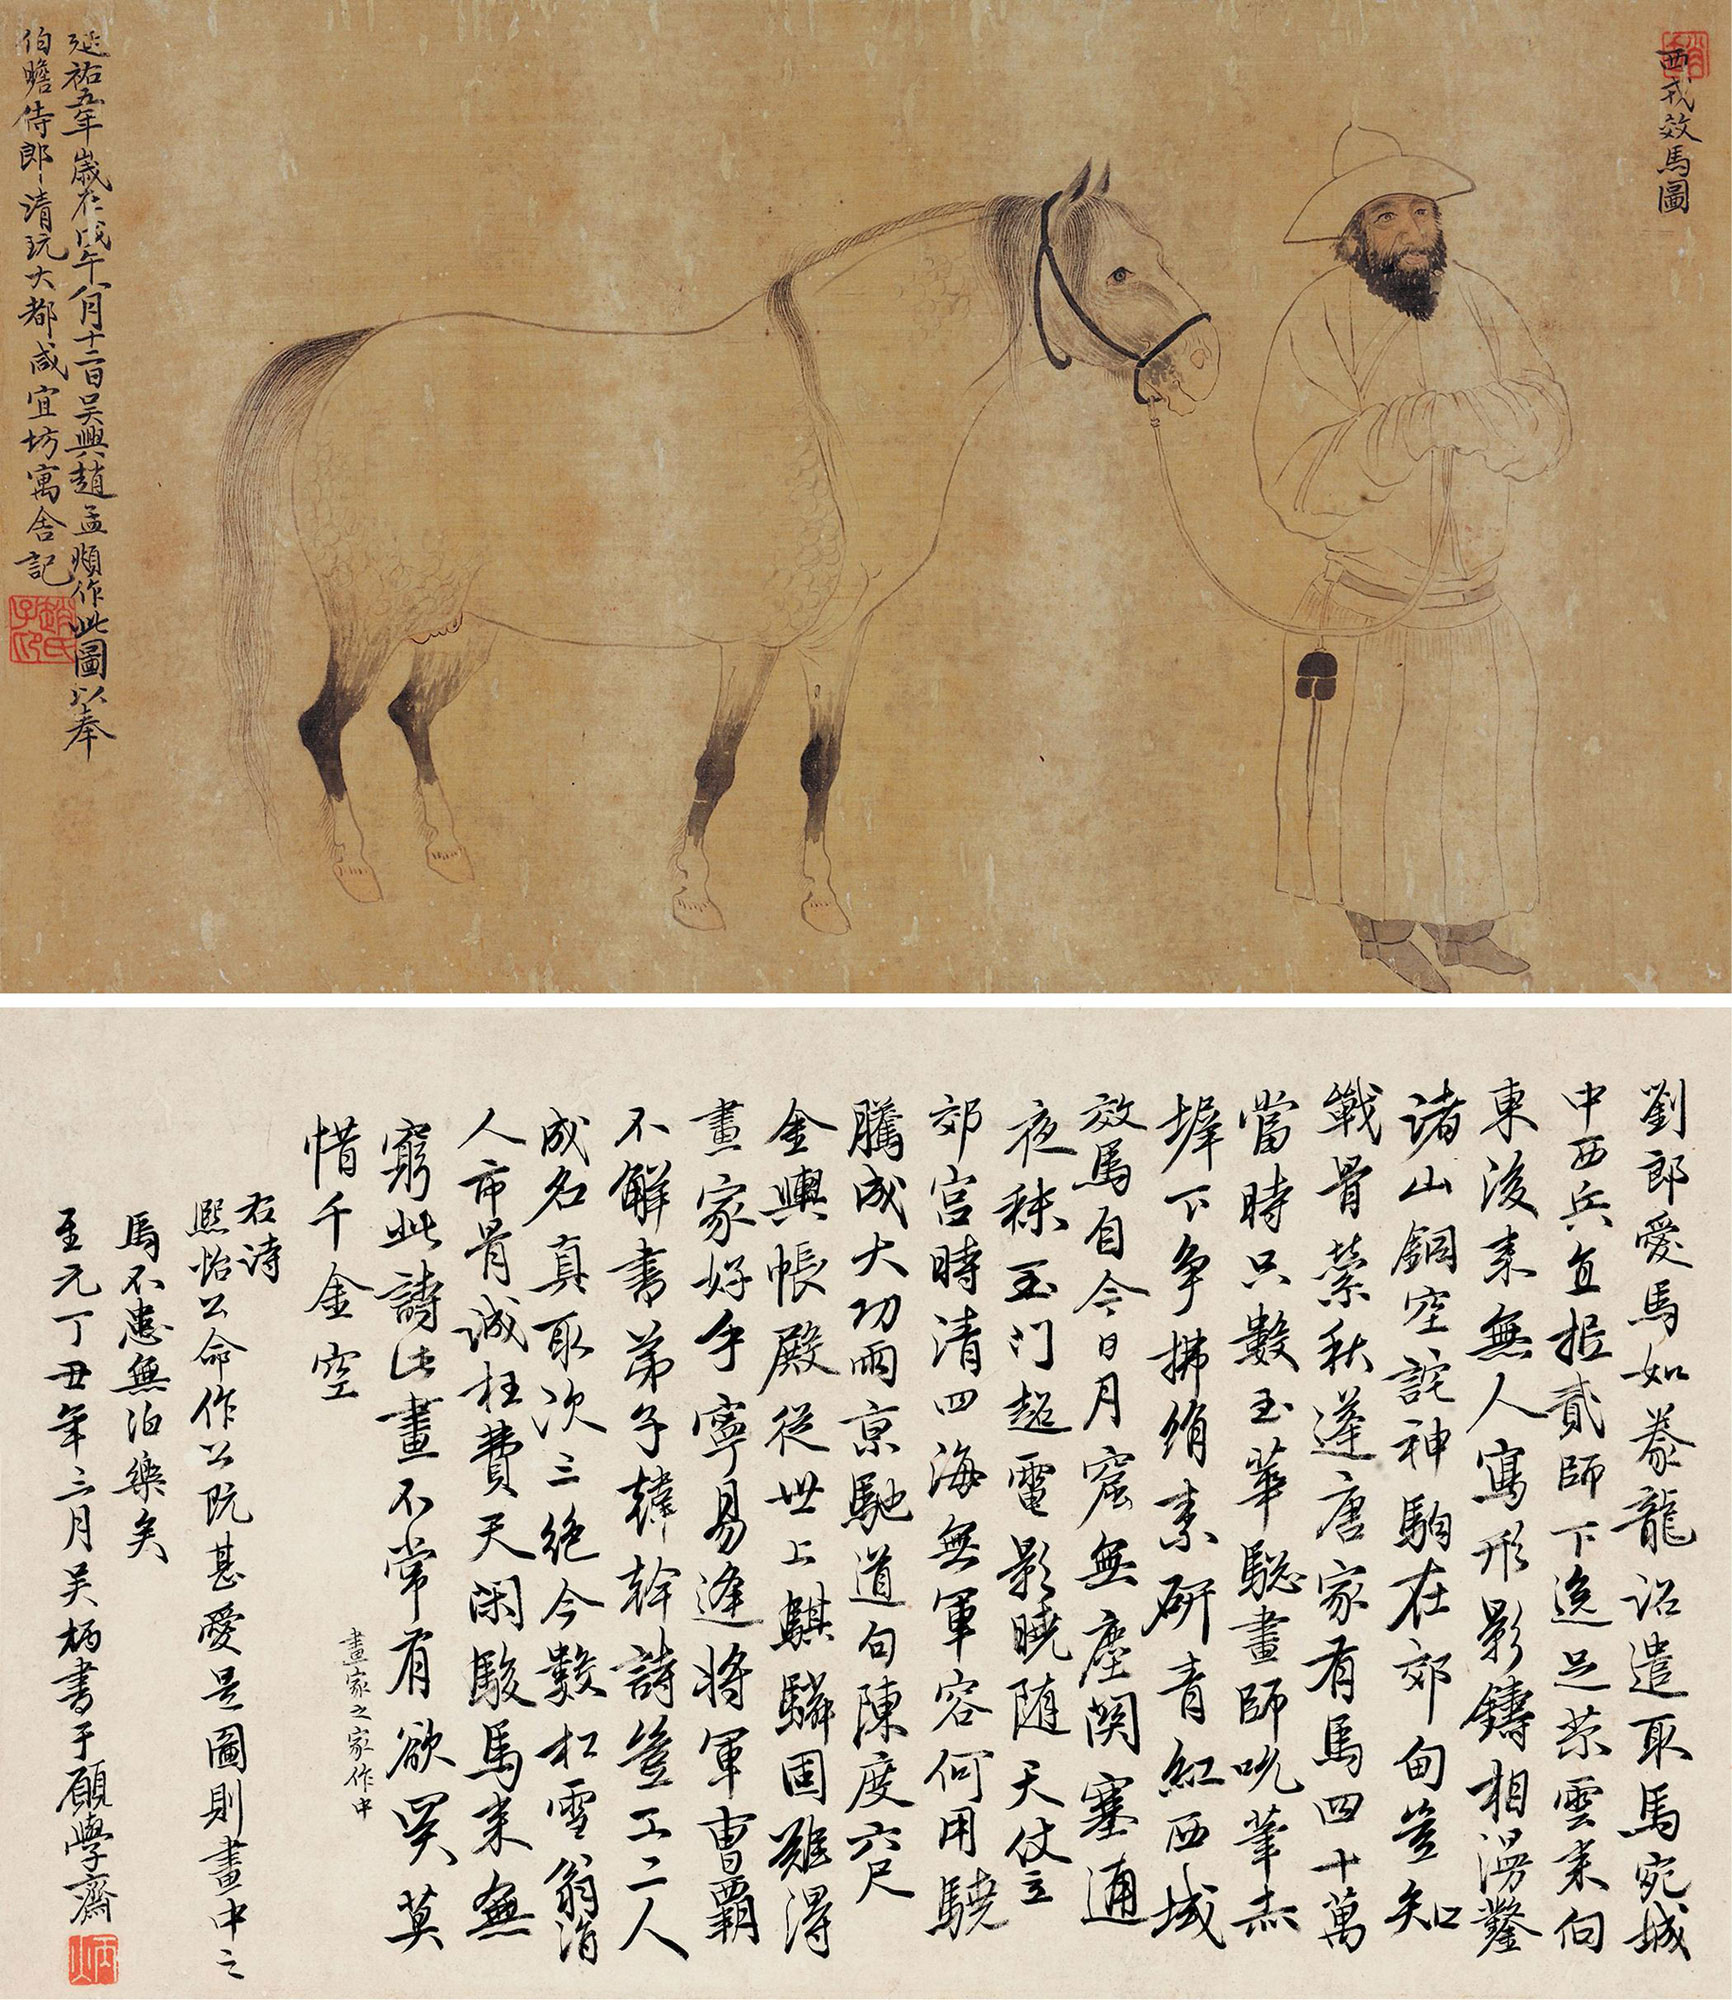 西戎效馬圖
延祐五年歲在戊午八月十二日吴興趙孟頫作此圖以奉
伯瞻侍郎清玩大都咸宜坊寓舍記
趙氏子印
劉郎愛馬如豢龍詔遣取馬宛城
中西兵直抵貳師下逸足荼雲来向
東後来無人寫形影鑄相漫鑿
诸山銅空詫神駒在郊甸豈知
戰骨縈秋蓬唐家有馬四十萬
當時只數玉華驄畫師吮筆赤
墀下争拂绢素研青紅西域
效馬自今日月窟無塵関塞通
夜秣玉门超電影曉随天仗立
郊宫時清四海無軍容何用驍
騰成大功兩京馳道句陳度六尺
金輿帳殿從世上騏驎固難得
畫家好手寧易逢将軍曹霸
不解書弟子韓幹詩豈工二人
成名真取次三绝今數松雪翁涓
人市骨诚枉費天闲駿馬来無
窮此詩此畫不常有欲買莫
惜千金空
畫家之家作中
右诗
熙怡公命作公既甚愛是圖則畫中之
馬不患無泊樂矣
至元丁丑年三月吴炳書于願學齋